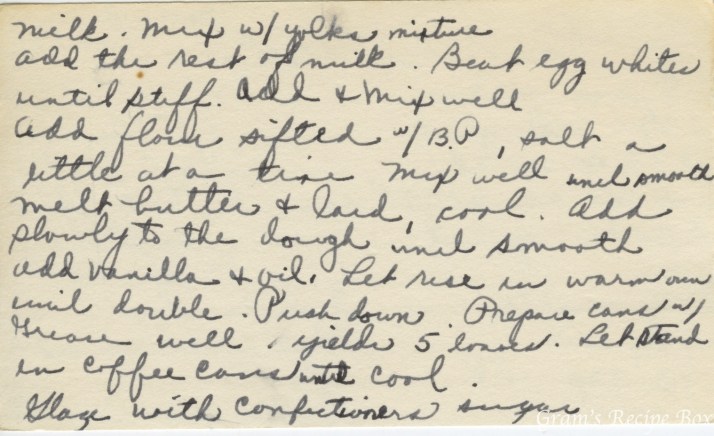 milk. Mix w/ yolks mixture
add the rest of milk. Beat egg whites
until stiff. Add & mix well
Add flour sifted w/ B.P, salt a
little at a time Mix well until smooth
melt butter & lard, cool. Add
slowly to the dough until smooth
add vanilla & oil. Let rise in warm oven
until double. Push down. Prepare cans w/
Grease well. yields 5 loaves. Let stand
in coffee cans until cool.
Glaze with confectioners sugar
Gram's Recipe Box